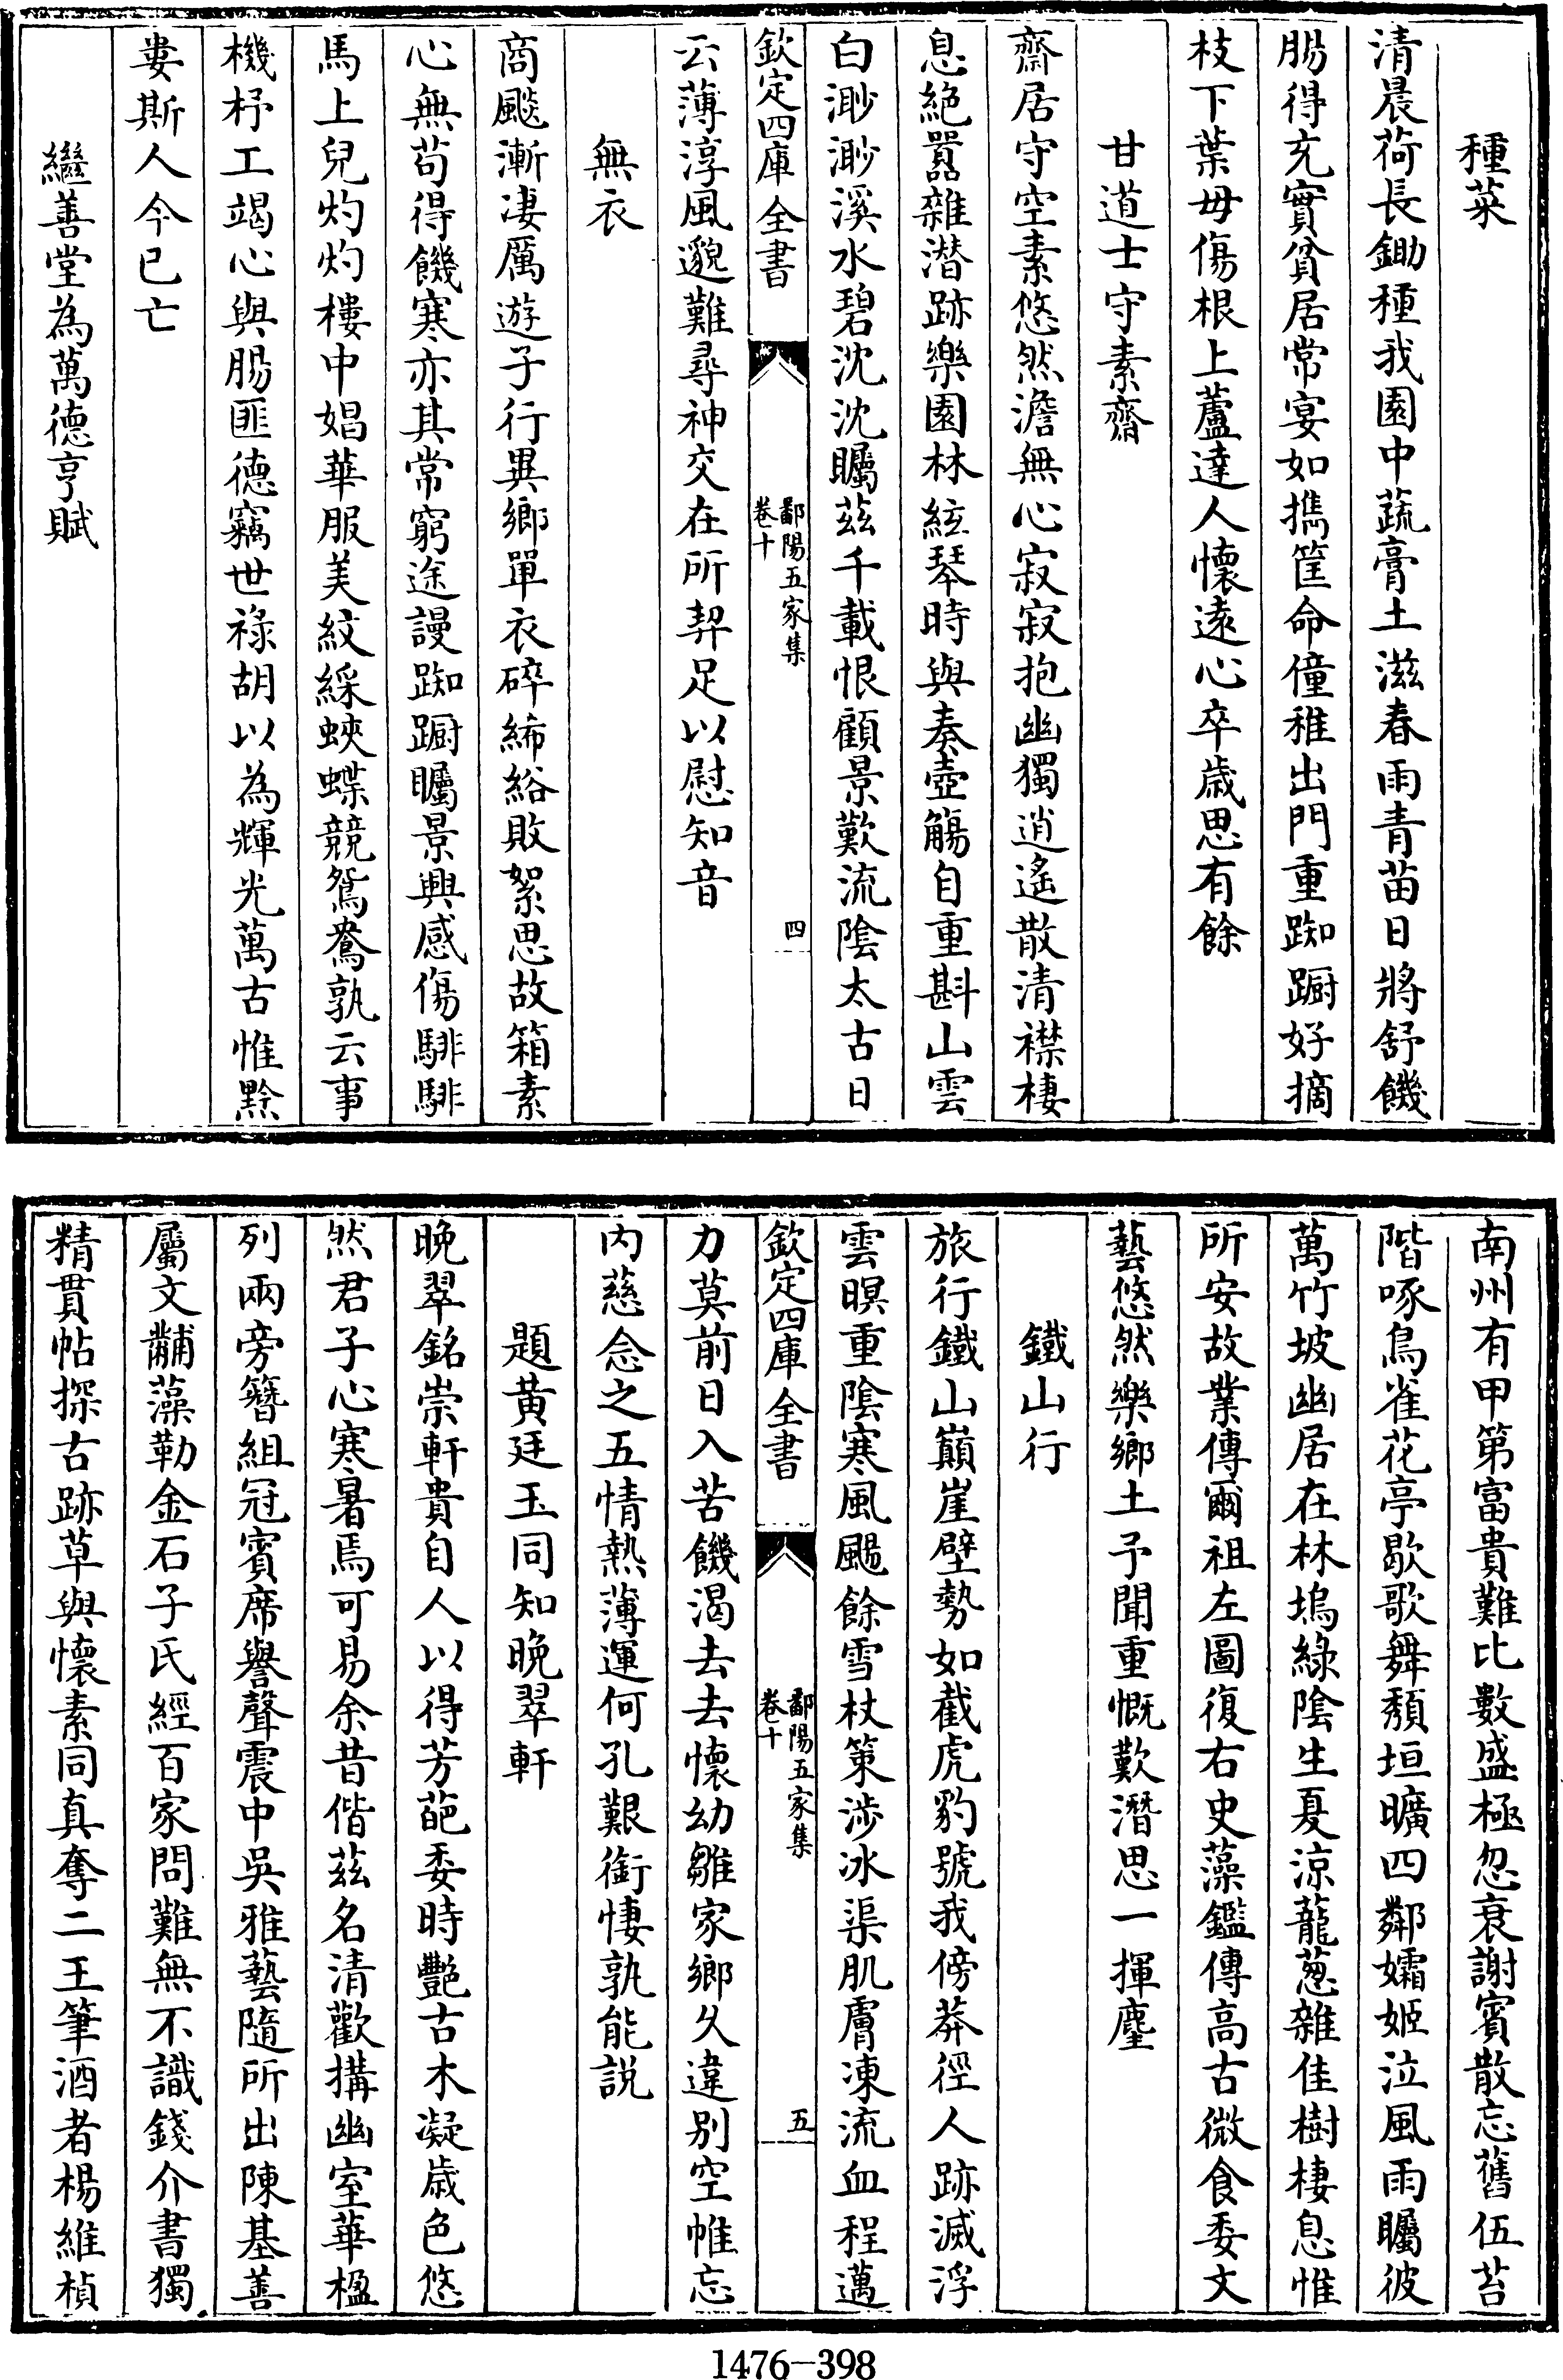 種菜
清晨荷長鋤種我園中蔬膏土滋春雨青苗日將舒饑
腸得充實貧居常宴如攜筐命僮稚出門重踟蹰好摘
枝下葉毋傷根上蘆達人懷遠心卒歲思有餘
甘道士守素齋
齋居守空素悠然澹無心寂寂抱幽獨逍遙散清襟棲
息絶囂雜潜跡樂園林絃琴時與奏壺觴自重斟山雲
白渺渺溪水碧沈沈矚兹千載恨顧景歎流隂太古日
欽定四庫全書
鄱陽五家集
卷十
四
云薄淳風邈難尋神交在所契足以慰知音
無衣
商飈漸淒厲遊子行異鄉單衣碎絺綌敗絮思故箱素
心無苟得饑寒亦其常窮途謾踟蹰矚景興感傷騑騑
馬上兒灼灼樓中娼華服美紋綵蛺蝶競鴛鴦孰云事
機杼工竭心與腸匪德竊世祿胡以為輝光萬古惟黔
婁斯人今已亡
繼善堂為萬德亨賦
南州有甲第富貴難比數盛極忽衰謝賓散忘舊伍苔
階啄鳥雀花亭歇歌舞頽垣曠四鄰孀姬泣風雨矚彼
萬竹坡幽居在林塢緑隂生夏涼蘢葱雜佳樹棲息惟
所安故業傳爾祖左圖復右史藻鑑傳高古微食委文
藝悠然樂鄉土予聞重慨歎潛思一揮麈
鐵山行
旅行鐵山巔崖壁勢如截虎豹號我傍莽徑人跡滅浮
雲暝重隂寒風颺餘雪杖策渉冰渠肌膚凍流血程邁
欽定四庫全書
鄱陽五家集
卷十
五
力莫前日入苦饑渴去去懷幼雛家鄉久違别空帷忘
内慈念之五情熱薄運何孔艱銜悽孰能説
題黃廷玉同知晚翠軒
晚翠銘崇軒貴自人以得芳葩委時艷古木凝歲色悠
然君子心寒暑焉可易余昔偕兹名清歡搆幽室華楹
列兩旁簪組冠賓席譽聲震中吳雅藝隨所出陳基善
屬文黼藻勒金石子氏經百家問難無不識錢介書獨
精貫帖探古跡草與懷素同真奪二王筆酒者楊維楨
1476-398